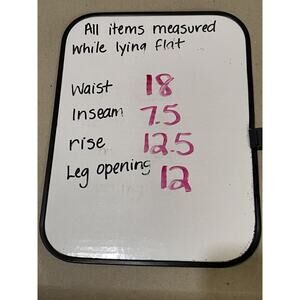 All items measured
while lying flat
Waist 18
Inseam 7.5
rise 12.5
Leg opening 12